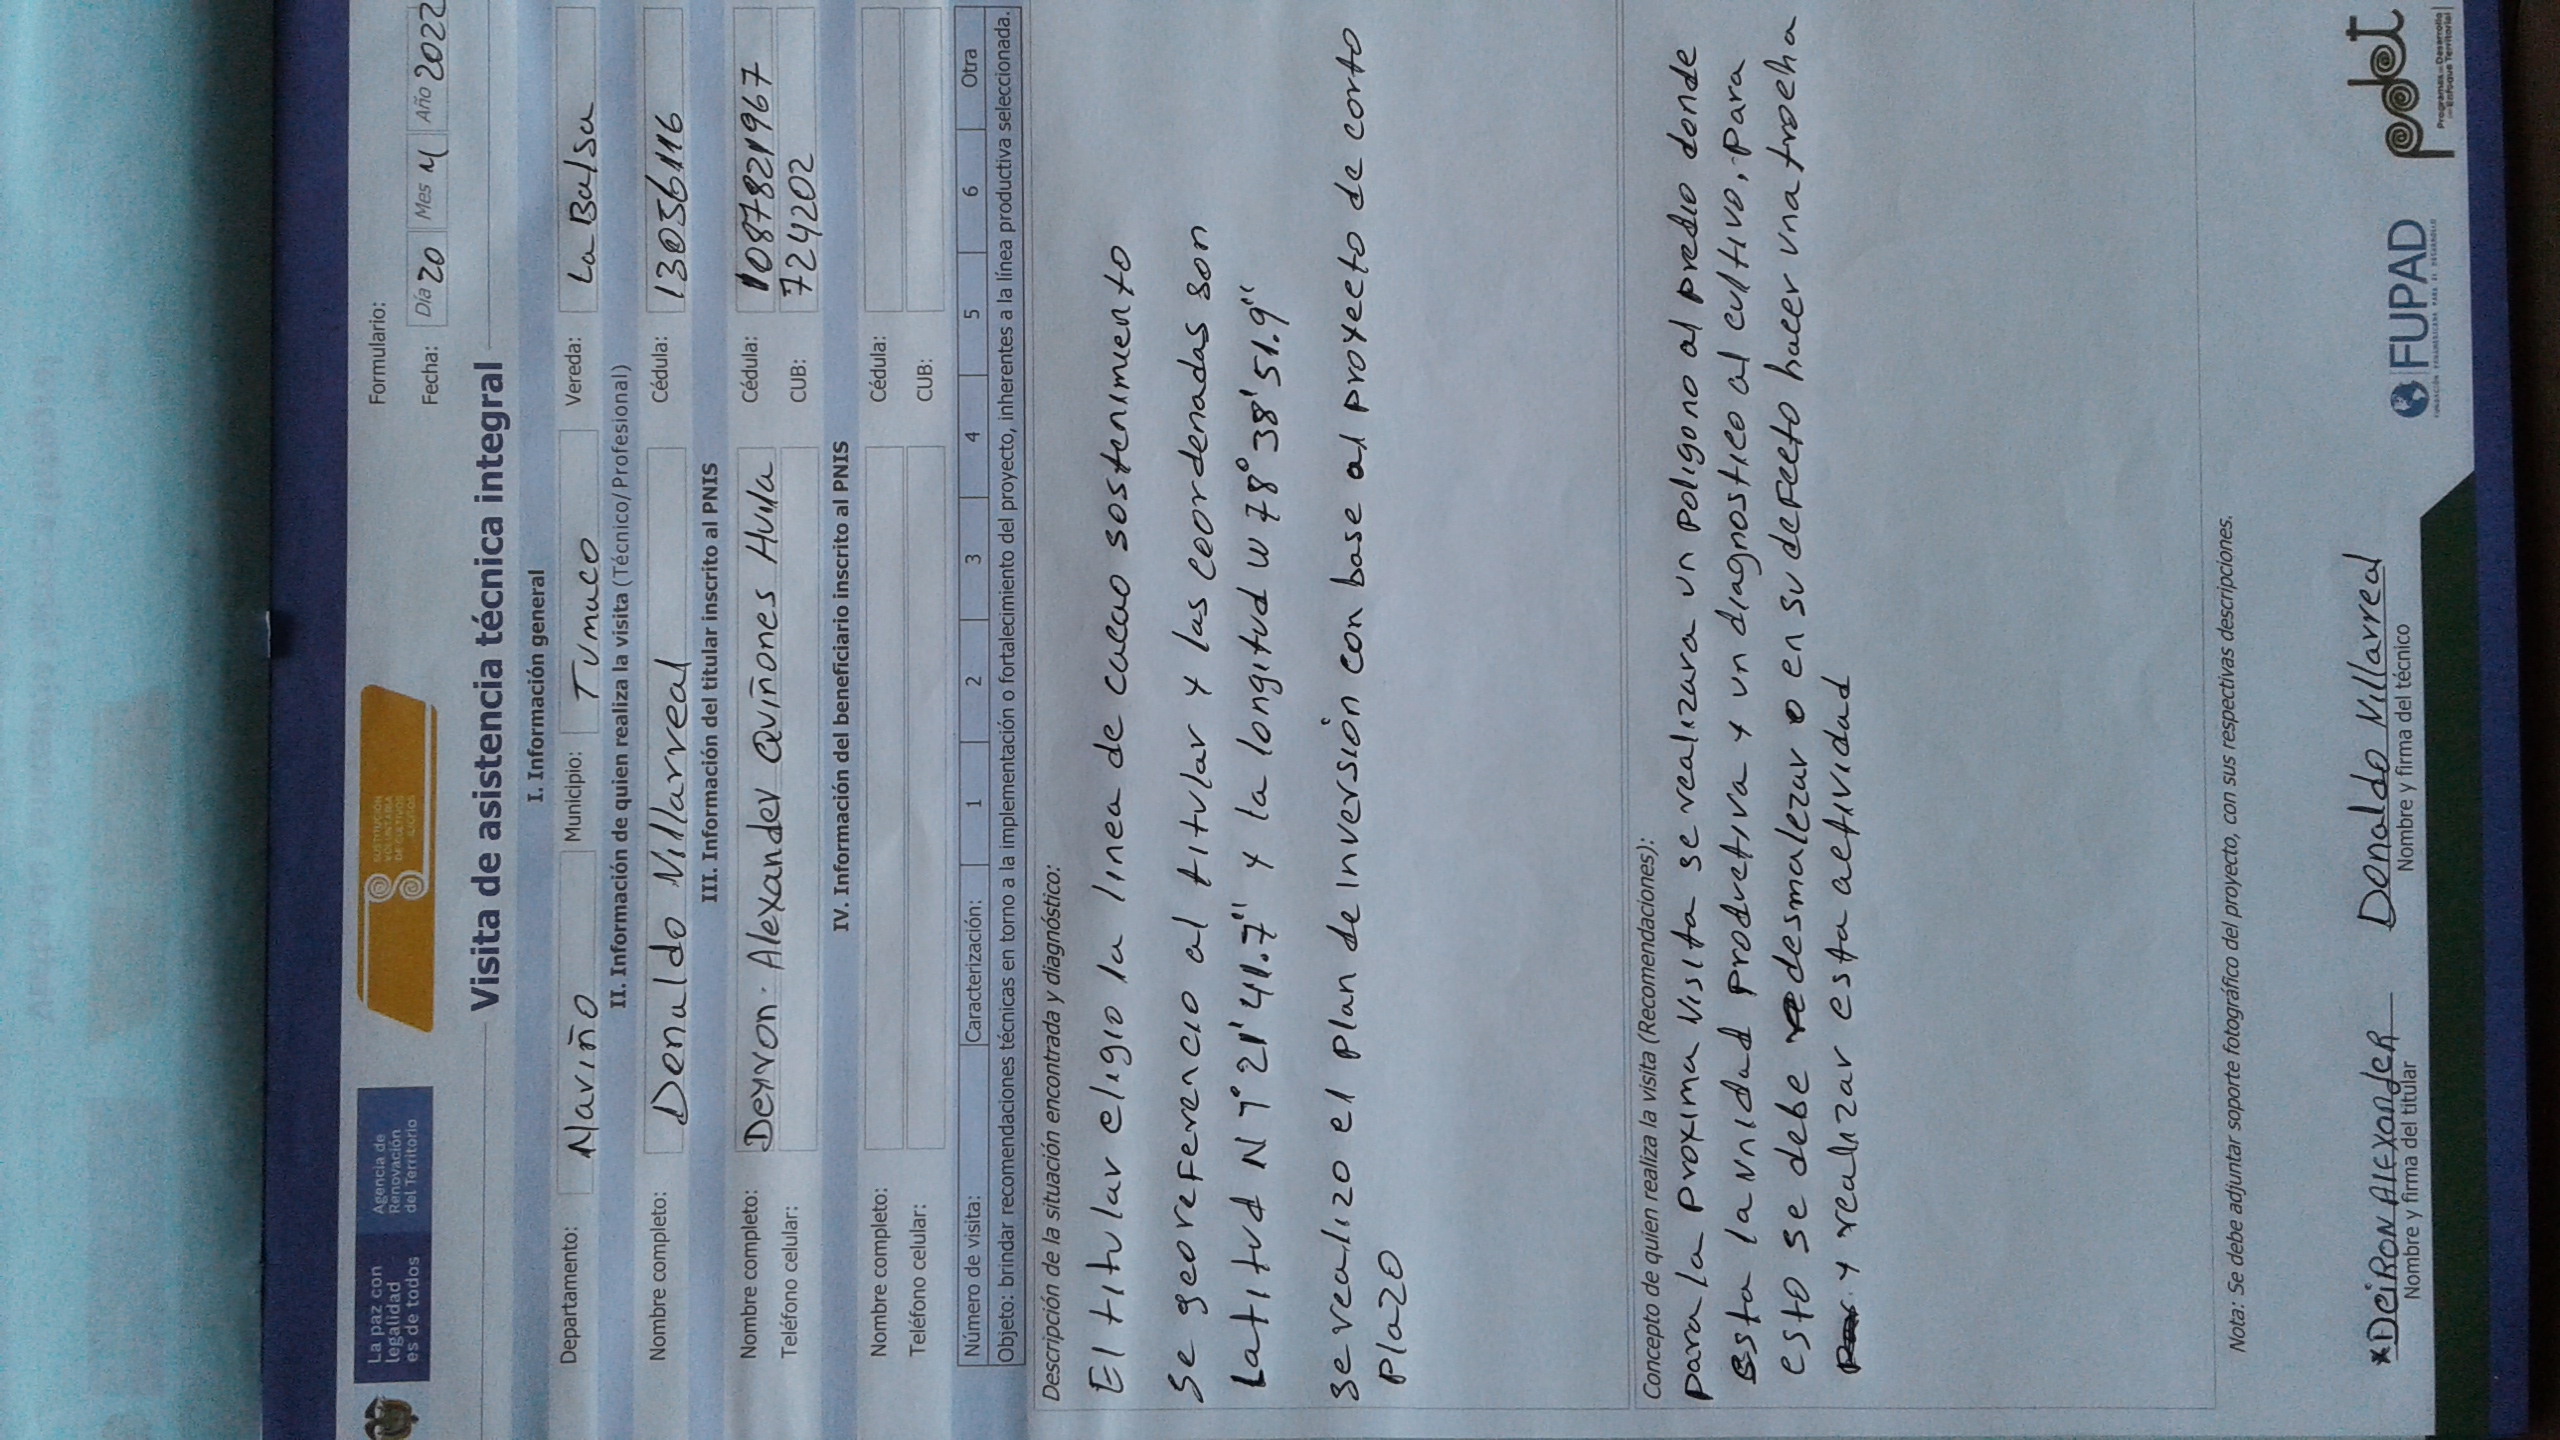 La paz con
legalidad
es de todos
Agencia de
Renovación
del Territorio
SUSTITUCIÓN
VOLUNTARIA
DE CULTIVOS
ILÍCITOS
Formulario:
Fecha: Día 20 Mes 4 Año 2022
Visita de asistencia técnica integral
I. Información general
Departamento: Nariño Municipio: Tumaco Vereda: La Balsa
II. Información de quien realiza la visita (Técnico/Profesional)
Nombre completo: Donaldo Villarreal Cédula: 13056116
III. Información del titular inscrito al PNIS
Nombre completo: Deyron Alexander Quiñones Huila Cédula: 1087821967
Teléfono celular: CUB: 724202
IV. Información del beneficiario inscrito al PNIS
Nombre completo: Cédula:
Teléfono celular: CUB:
Número de visita: Caracterización: 1 2 3 4 5 6 Otra
Objeto: brindar recomendaciones técnicas en torno a la implementación o fortalecimiento del proyecto, inherentes a la línea productiva seleccionada.
Descripción de la situación encontrada y diagnóstico:
El titular eligio la linea de cacao sostenimiento
Se georeferencio al titular y las coordenadas son
Latitud N 1° 21' 41.7" y la longitud W 78° 38' 51.9"
se realizo el plan de inversion con base al proyecto de corto
plazo
Concepto de quien realiza la visita (Recomendaciones):
para la proxima visita se realizara un poligono al predio donde
esta la unidad productiva y un diagnostico al cultivo, para
esto se debe desmalezar o en su defecto hacer una trocha
y realizar esta actividad
Nota: Se debe adjuntar soporte fotográfico del proyecto, con sus respectivas descripciones.
x DeiRON AlEXandeR
Nombre y firma del titular
Donaldo Villarreal
Nombre y firma del técnico
FUPAD
FUNDACIÓN PANAMERICANA PARA EL DESARROLLO
pdet
Programas de Desarrollo
con Enfoque Territorial